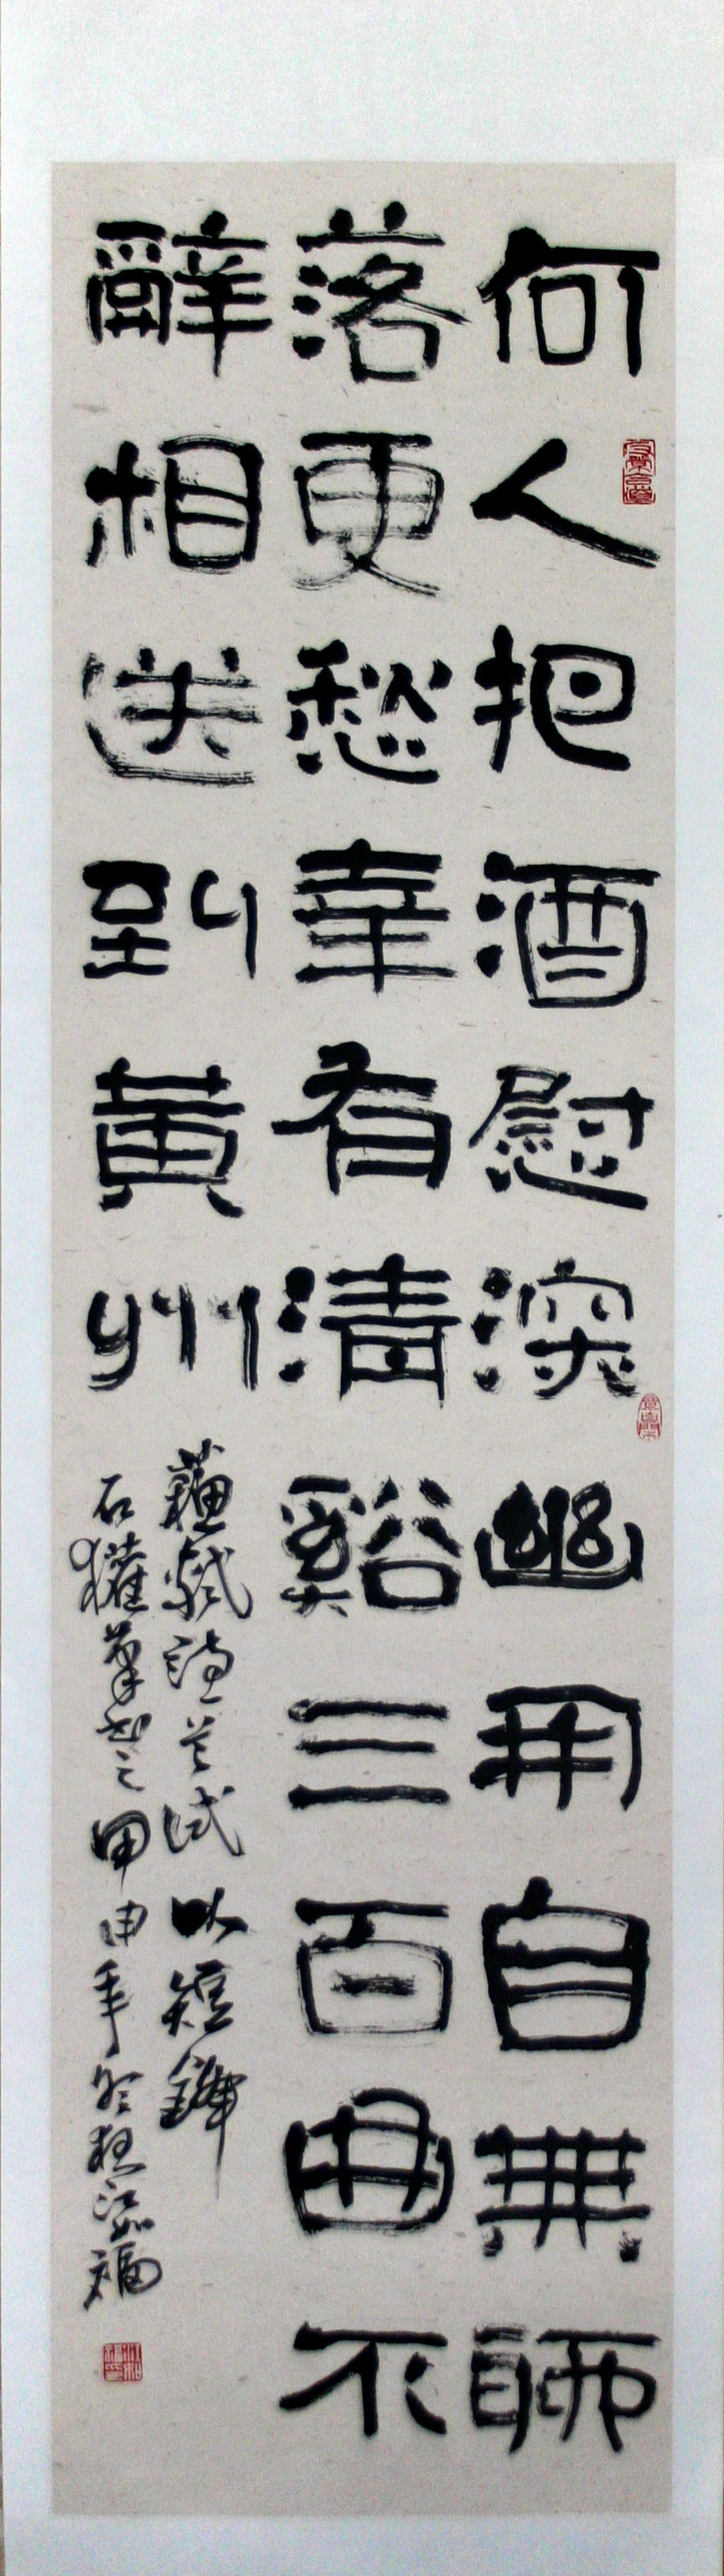 何人把酒慰深幽開自無聊
落更愁幸有清谿三百曲不
辭相送到黃州
蘇軾詩試以短鋒
石獾筆書之甲申年